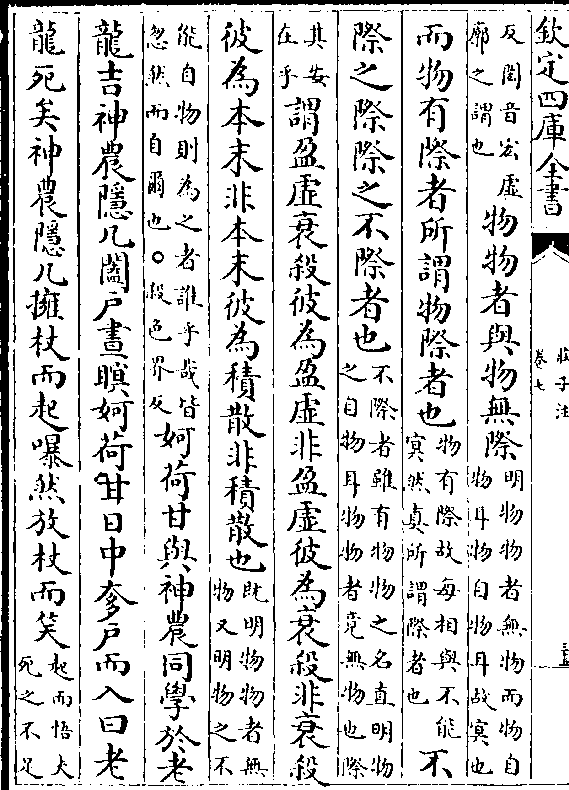 欽定四庫全書
莊子注
卷七
反閎音宏虛
廓之謂也
物物者與物無際
明物物者無物而物自
物耳物自物耳故冥也
而物有際者所謂物際者也
物有際故每相與不能
冥然真所謂際者也
不
際之際際之不際者也
不際者雖有物物之名直明物
之自物耳物物者竟無物也際
其安
在乎
謂盈虛衰殺彼為盈虛非盈虛彼為衰殺非衰殺
彼為本末非本末彼為積散非積散也
既明物物者無
物又明物之不
能自物則為之者誰乎哉皆
忽然而自爾也○殺色界反
妸荷甘與神農同學於老
龍吉神農隱几闔戶晝瞑妸荷甘日中奓戶而入曰老
龍死矣神農隱几擁杖而起嚗然放杖而笑
起而悟夫
死之不足